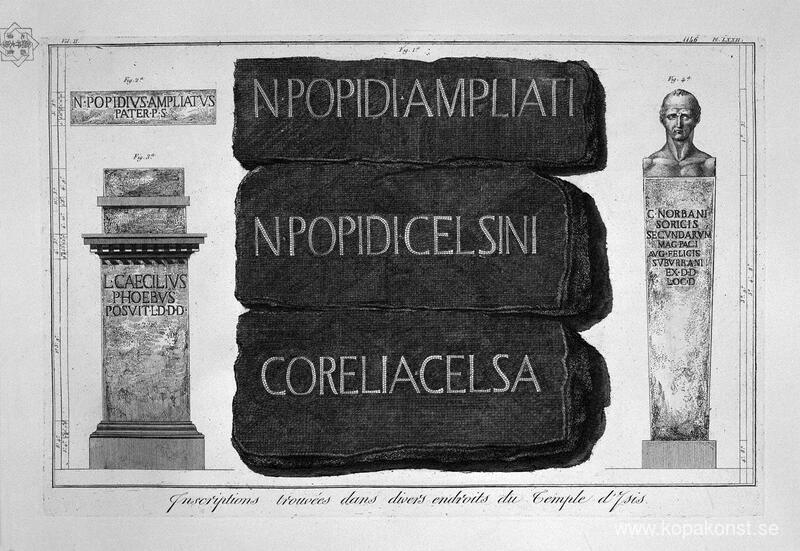 Vol. II.
1146 Pl. LXXII.
Fig. 1ª
Fig. 2ª
N·POPIDIVS·AMPLIATVS
PATER·P·S·
Fig. 3ª
L·CAECILIVS
PHOEBVS
POSVIT·L·D·D·D·
N·POPIDI·AMPLIATI
N·POPIDI·CELSINI
CORELIACELSA
Fig. 4ª
C·NORBANI
SORICIS
SECVNDARVM
MAG·PAGI
AVG·FELICIS
SVBVRBANI
EX·D·D
LOC·D
Inscriptions trouvées dans divers endroits du Temple d'Isis.
www.kopakonst.se